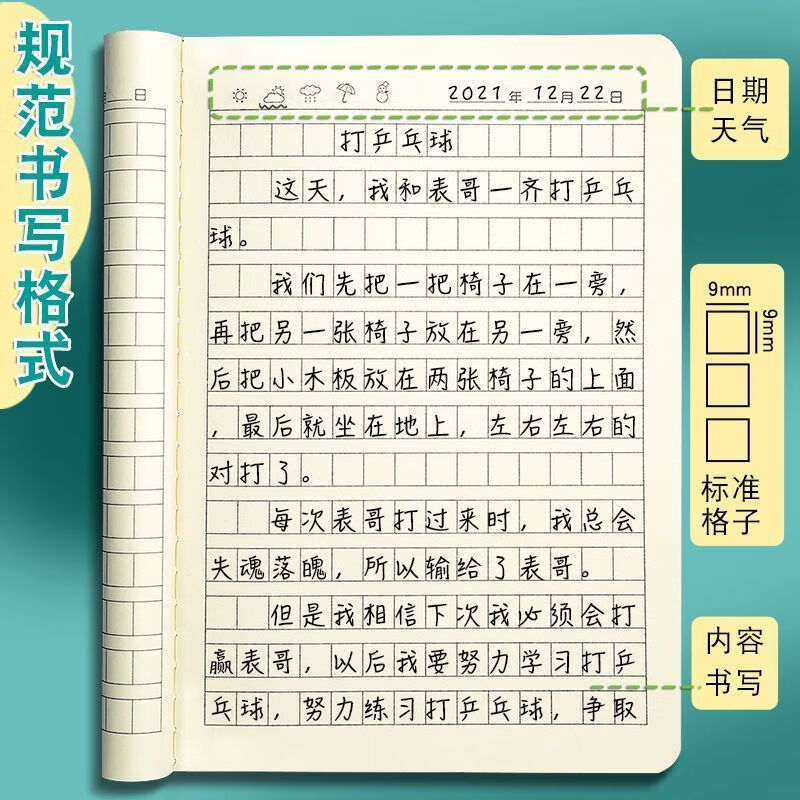 规范书写格式
日
2021年12月22日
日期
天气
打乒乓球
这天，我和表哥一齐打乒乓
球。
我们先把一把椅子在一旁，
再把另一张椅子放在另一旁，然
后把小木板放在两张椅子的上面
，最后就坐在地上，左右左右的
对打了。
每次表哥打过来时，我总会
失魂落魄，所以输给了表哥。
但是我相信下次我必须会打
赢表哥，以后我要努力学习打乒
乓球，努力练习打乒乓球，争取
9mm
9mm
标准
格子
内容
书写